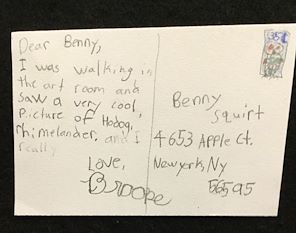 Dear Benny,
I was walking in
the art room and
saw a very cool,
Picture of Hodag,
rhimelander, and I
really
Love,
Brooke
Benny
Squirt
4653 Apple Ct.
Newyork, Ny
56595
35¢